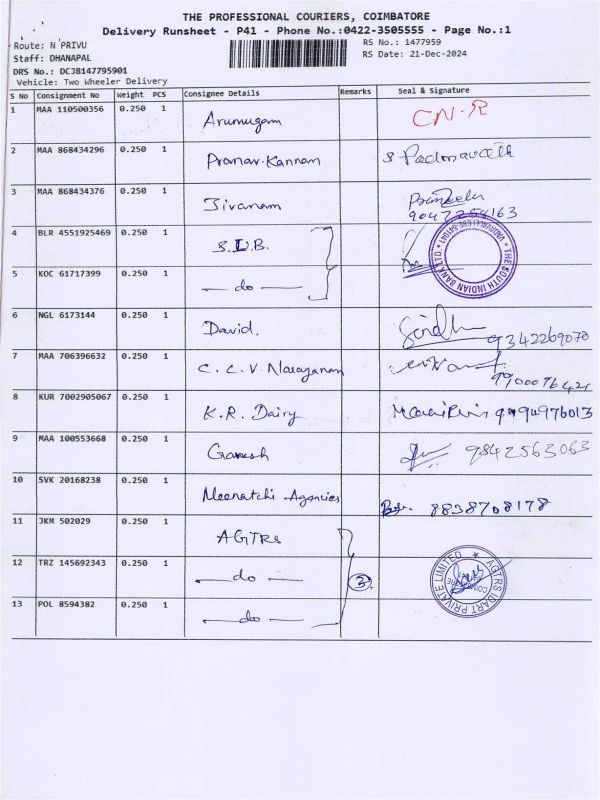 THE PROFESSIONAL COURIERS, COIMBATORE
Delivery Runsheet - P41 - Phone No.:0422-3505555 - Page No.:1
Route: N PRIVU
RS No.: 1477959
Staff: DHANAPAL
RS Date: 21-Dec-2024
DRS No.: DCJ8147795901
Vehicle: Two Wheeler Delivery
S No Consignment No Weight PCS Consignee Details Remarks Seal & Signature
1 MAA 110500356 0.250 1 Arumugam CN-R
2 MAA 868434296 0.250 1 Pranav.Kannam S Padmavathi
3 MAA 868434376 0.250 1 Jivanam
4 BLR 4551925469 0.250 1 S.I.B.
THE SOUTH INDIAN BANK LTD.
5 KOC 61717399 0.250 1 — do —
6 NGL 6173144 0.250 1 David. 9342269070
7 MAA 706396632 0.250 1 C. L. V. Narayanan
8 KUR 7002905067 0.250 1 K.R. Dairy
9 MAA 100553668 0.250 1 Ganesh 9842563063
10 SVK 20168238 0.250 1 Meenatchi Agencies 8838708178
11 JKM 502029 0.250 1 AGTRS
12 TRZ 145692343 0.250 1 — do — 3
AGTRS IDART PRIVATE LIMITED
13 POL 8594382 0.250 1 — do —